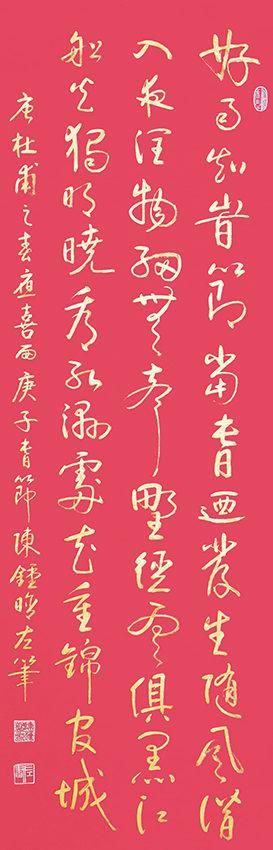 好雨知時節當春迺發生隨風潛
入夜潤物細無聲野徑雲俱黑江
船火獨明曉看紅濕處花重錦官城
唐杜甫之春夜喜雨庚子春節陳鍾左筆